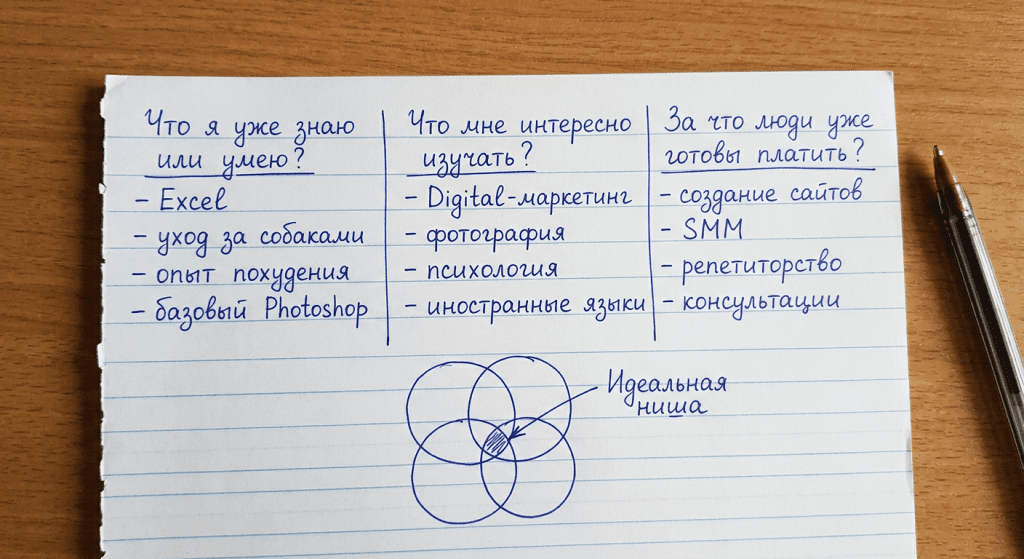 Что я уже знаю
или умею?
- Excel
- уход за собаками
- опыт похудения
- базовый Photoshop
Что мне интересно
изучать?
- Digital-маркетинг
- фотография
- психология
- иностранные языки
За что люди уже
готовы платить?
- создание сайтов
- SMM
- репетиторство
- консультации
Идеальная
ниша